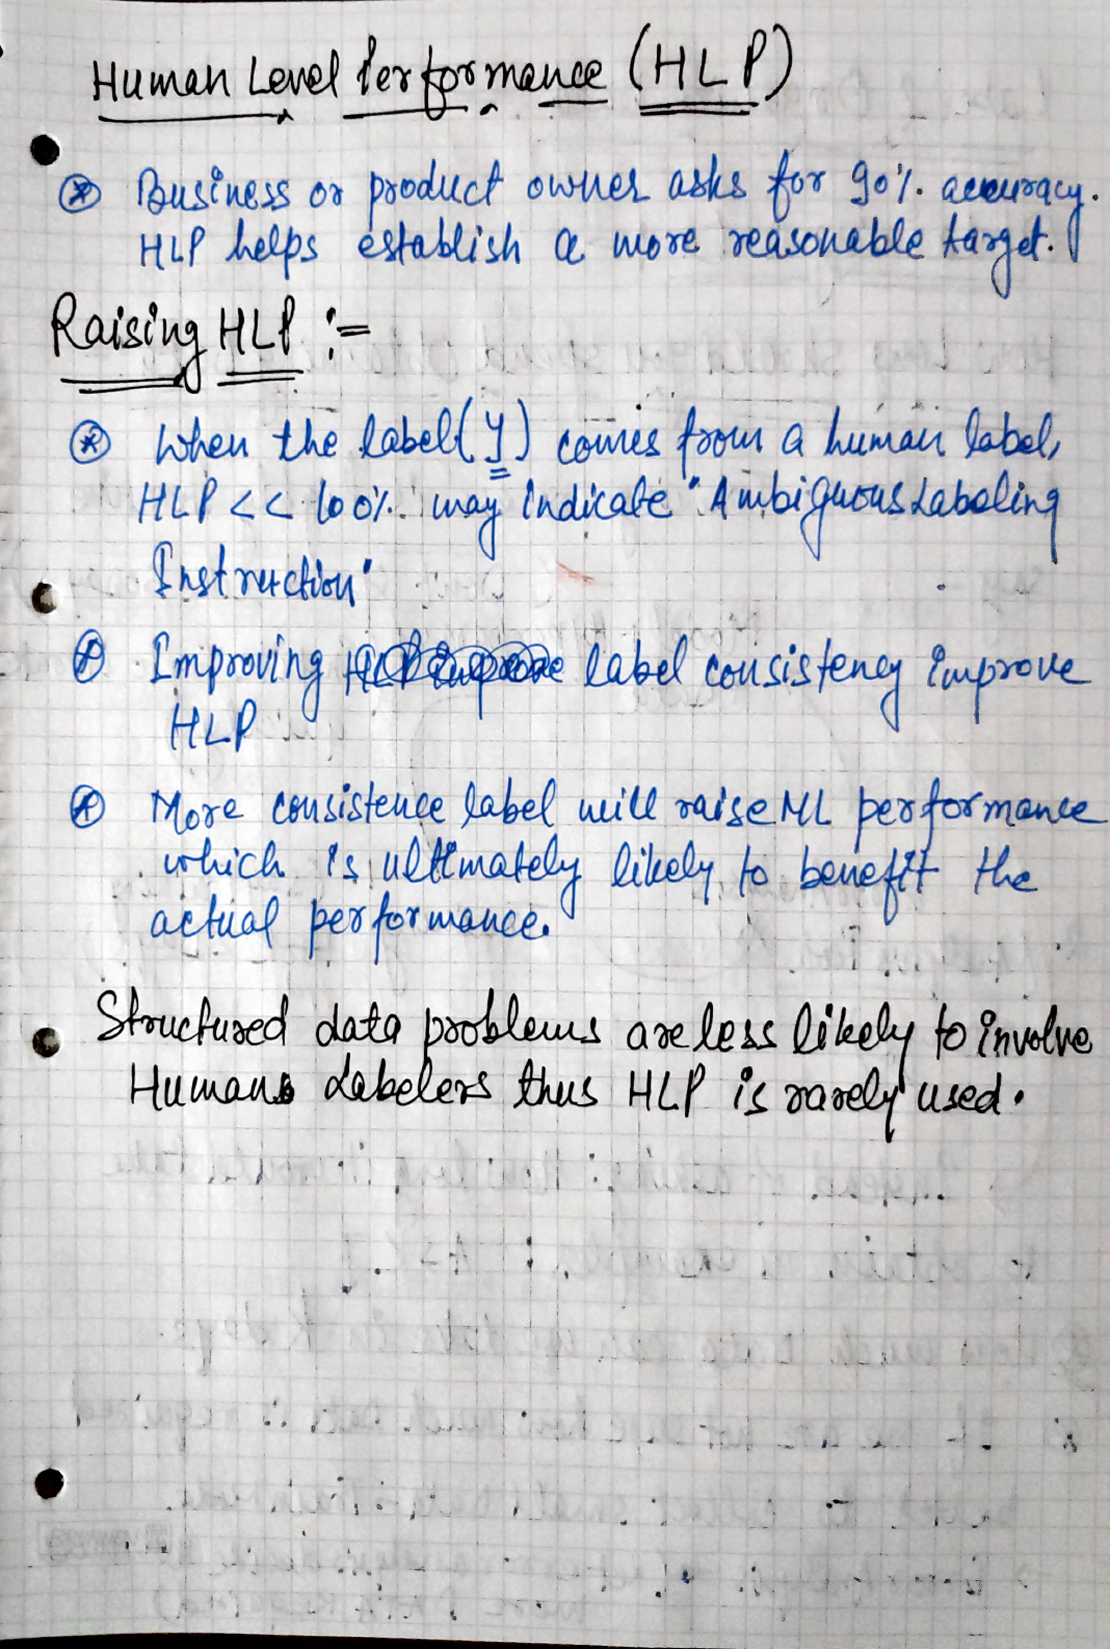 Human Level Performance (HLP)
⊛ Business or product owner asks for 90% accuracy.
HLP helps establish a more reasonable target.
Raising HLP :-
⊛ When the label (y) comes from a human label,
HLP << 100% may indicate "Ambiguous Labeling
Instruction"
⊛ Improving label consistency improve
HLP
⊛ More consistence label will raise ML performance
which is ultimately likely to benefit the
actual performance.
Structured data problems are less likely to involve
Humans Labelers thus HLP is rarely used.